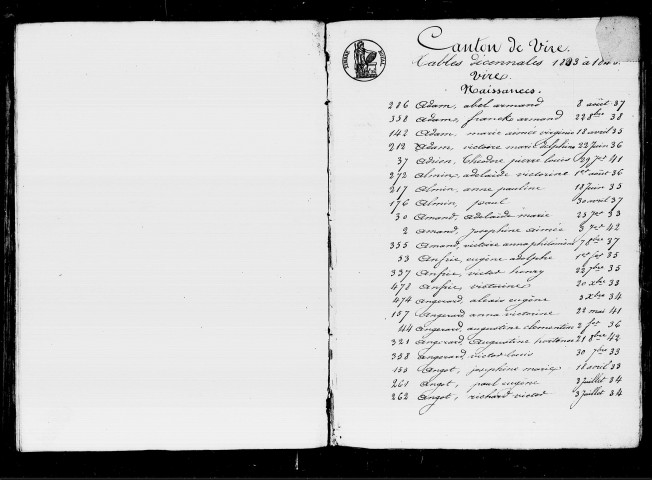 TIMBRE ROYAL
Canton de Vire.
Tables décennales 1833 à
Vire.
Naissances.
286 Adam, abel armand 8 août 37
358 Adam, franck armand 22 8bre 38
142 Adam, marie aimée virginie 18 avril 35
212 Adam, victoire marie delphine 22 Juin 36
37 Adrien, théodore pierre louis 29 Jer 41
272 Almin, adelaïde victorine 1er août 36
217 Almin, anne pauline 18 Juin 35
176 Almin, paul 30 avril 37
30 Amand, Adelaïde marie 25 Jer 33
2 Amand, Josephine aimée 3 Jer 42
355 Amand, victoire anna philomène 7 8bre 37
53 Anfrie, eugène adolphe 1er fer 35
337 Anfrie, victor henry 22 7bre 35
478 Anfrie, victorine 20 xbre 33
474 Angerard, alexis eugène 3 xbre 34
157 Angerard anna victorine 22 mai 41
44 Angerard, augustine clementine 2 fer 36
321 Angerard, Augustine hortense 21 8bre 42
358 Angerard, victor louis 30 7bre 33
153 Angot, josephine marie 18 avril 33
261 Angot, paul eugène 3 Juillet 34
262 Angot, richard victor 3 Juillet 34